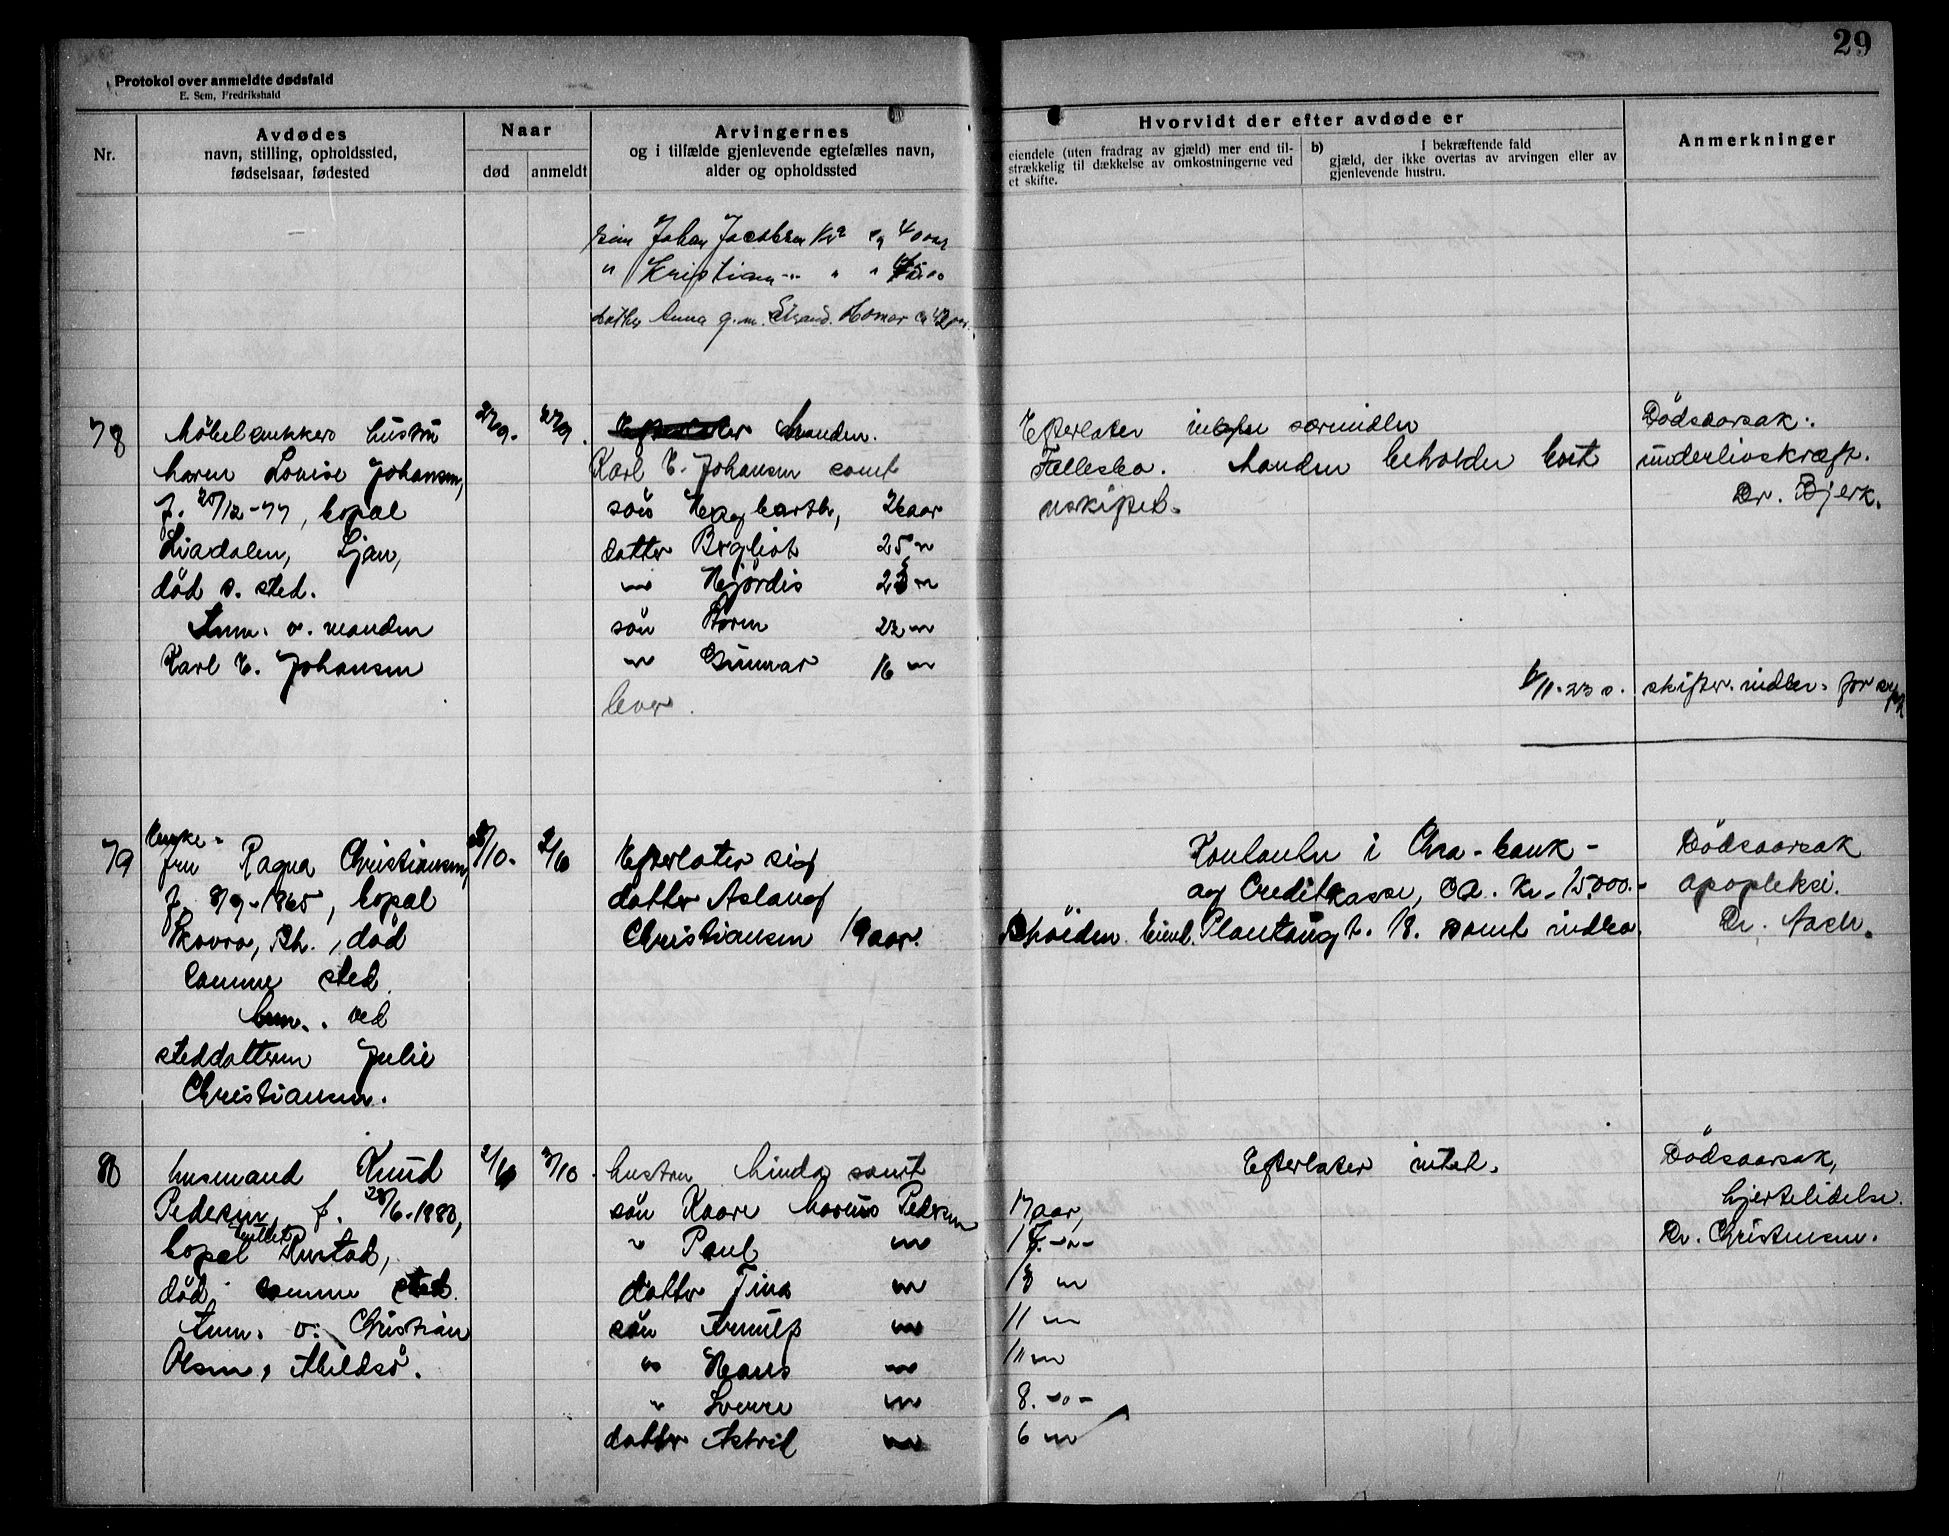 29
Protokol over anmeldte dødsfald
E. Sem, Fredrikshald
Nr.
Avdødes
navn, stilling, opholdssted,
fødselsaar, fødested
Naar
død
anmeldt
Arvingernes
og i tilfælde gjenlevende egtefælles navn,
alder og opholdssted
Hvorvidt der efter avdøde er
eiendele (uten fradrag av gjæld) mer end til-
strækkelig til dækkelse av omkostningerne ved
et skifte.
b) I bekræftende fald
gjæld, der ikke overtas av arvingen eller av
gjenlevende hustru.
Anmerkninger
Johan Jacobsen 40 aar
" Kristian
datter Anna g.m. 42 aar.
78
hustru
Maren Lovise Johansen,
f. 20/12-77, bopæl
Liadalen, Ljan,
død s. sted.
Anm. v. manden
Karl E. Johansen
27/9.
27/9.
Efterlater Manden.
Karl E. Johansen samt
søn Hagbarth, 26 aar
datter Bergliot 25 "
" Hjørdis 23 "
søn Storm 22 "
" Gunnar 16 "
lever.
Efterlater ingen særmidler
Fællesbo. Manden beholder boet
uskiftet.
Dødsaarsak:
underlivskræft.
Dr. Bjerk.
/11-23 s. skifter. midler. for
79
Enke-
fru Ragna Christiansen,
f. 8/9-1865, bopæl
Skovro, Bh., død
samme sted.
Anm. ved
steddatteren Julie
Christiansen.
/10.
2/10
Efterlater sig
datter Aslaug
Christiansen 19 aar.
i Chra-bank-
og Creditkasse, ca. Kr. 15.000.-
Plantaug t. 18. samt indbo.
Dødsaarsak
apopleksi.
Dr. Aash.
80
husmand Knud
Pedersen, f. 28/6-1880,
bopæl Rustad,
død samme sted.
Anm. v. Christian
Olsen, Abildsø.
2/10
3/10.
hustru Minda samt
søn Kaare Marius Pedersen 17 aar,
" Paul "
datter Tina " 13 "
søn Arnulf " 11 "
" Hans " 11 "
" Sverre " 8. -"-
datter Astrid " 6 "
Efterlater intet.
Dødsaarsak,
hjertelidelse.
Dr. Christensen.